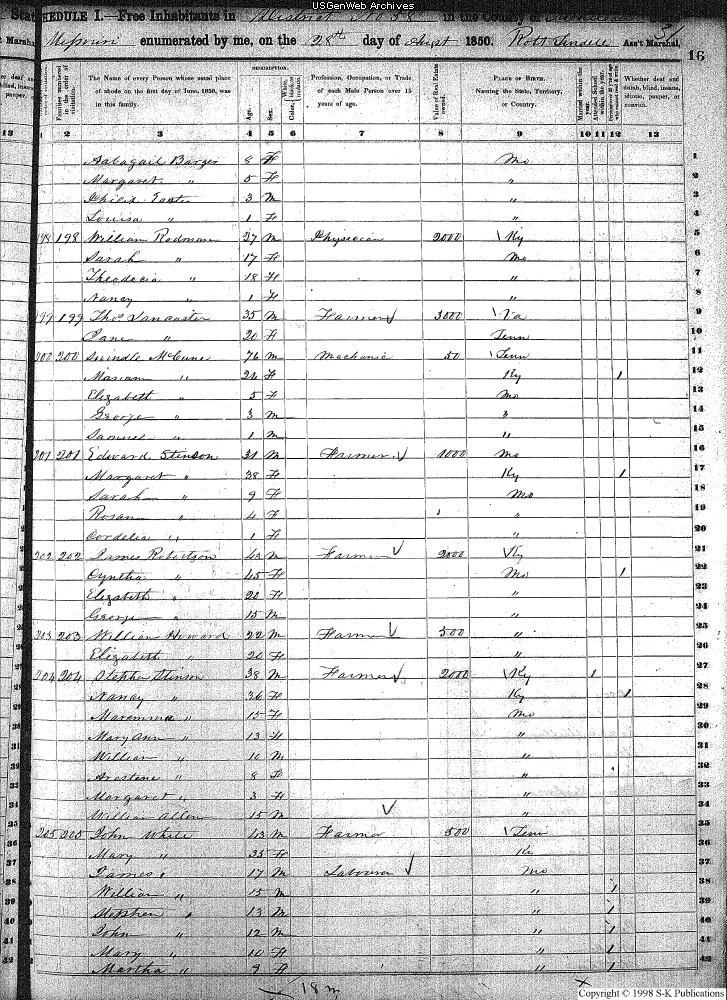 USGenWeb Archives
SCHEDULE I.—Free Inhabitants in District No 38 in the County of
Missouri enumerated by me, on the 28th day of Augt 1850. Robt Ass't Marshal.
16
DESCRIPTION.
The Name of every Person whose usual place of abode on the first day of June, 1850, was in this family.
Age. Sex. Color
Profession, Occupation, or Trade of each Male Person over 15 years of age.
Value of Real Estate owned.
PLACE OF BIRTH. Naming the State, Territory, or Country.
Married within the year. Attended School within the year.
Whether deaf and dumb, blind, insane, idiotic, pauper, or convict.
1 2 3 4 5 6 7 8 9 10 11 12 13
Aabagail Barger 8 F Mo 1
Margaret " 5 F " 2
3 M " 3
Louisa " 1 F " 4
198 198 William Redman 27 M Physician 2000 Ky 5
Sarah " 17 F Mo 6
Theodocia " 18 F " 7
Nancy " 1 F " 8
199 199 Thos Lancaster 35 M Farmer 3000 Va 9
Jane " 20 F Tenn 10
200 200 McCune 76 M Mechanic 50 Tenn 11
Marian " 24 F Ky 1 12
Elizabeth " 5 F Mo 13
George " 3 M " 14
Samuel " 1 M " 15
201 201 Edward Stinson 31 M Farmer 1000 Mo 16
Margaret " 38 F Ky 1 17
Sarah " 9 F Mo 18
Rosan " 4 F " 19
Cordelia " 1 F " 20
202 202 James Robertson 43 M Farmer 2000 Ky 21
Cyntha " 45 F Mo 1 22
Elizabeth " 20 F " 23
George " 15 M " 24
203 203 William Howard 22 M Farmer 500 " 25
Elizabeth " 20 F " 26
204 204 Stephen Stinson 38 M Farmer 2000 Ky 1 27
Nancy " 36 F Ky 1 28
" 15 F Mo 29
Mary Ann " 13 F " 30
William " 10 M " 31
" 8 F " 32
Margaret " 3 F " 33
William Allen 15 M " 34
205 205 John White 43 M Farmer 500 Tenn 35
Mary " 35 F Ky 36
James " 17 M Labourer Mo 37
William " 15 M " 1 38
Stephen " 13 M " 1 39
John " 12 M " 1 40
Mary " 10 F " 1 41
Martha " 9 F " 1 42
18 m
Copyright © 1998 S-K Publications